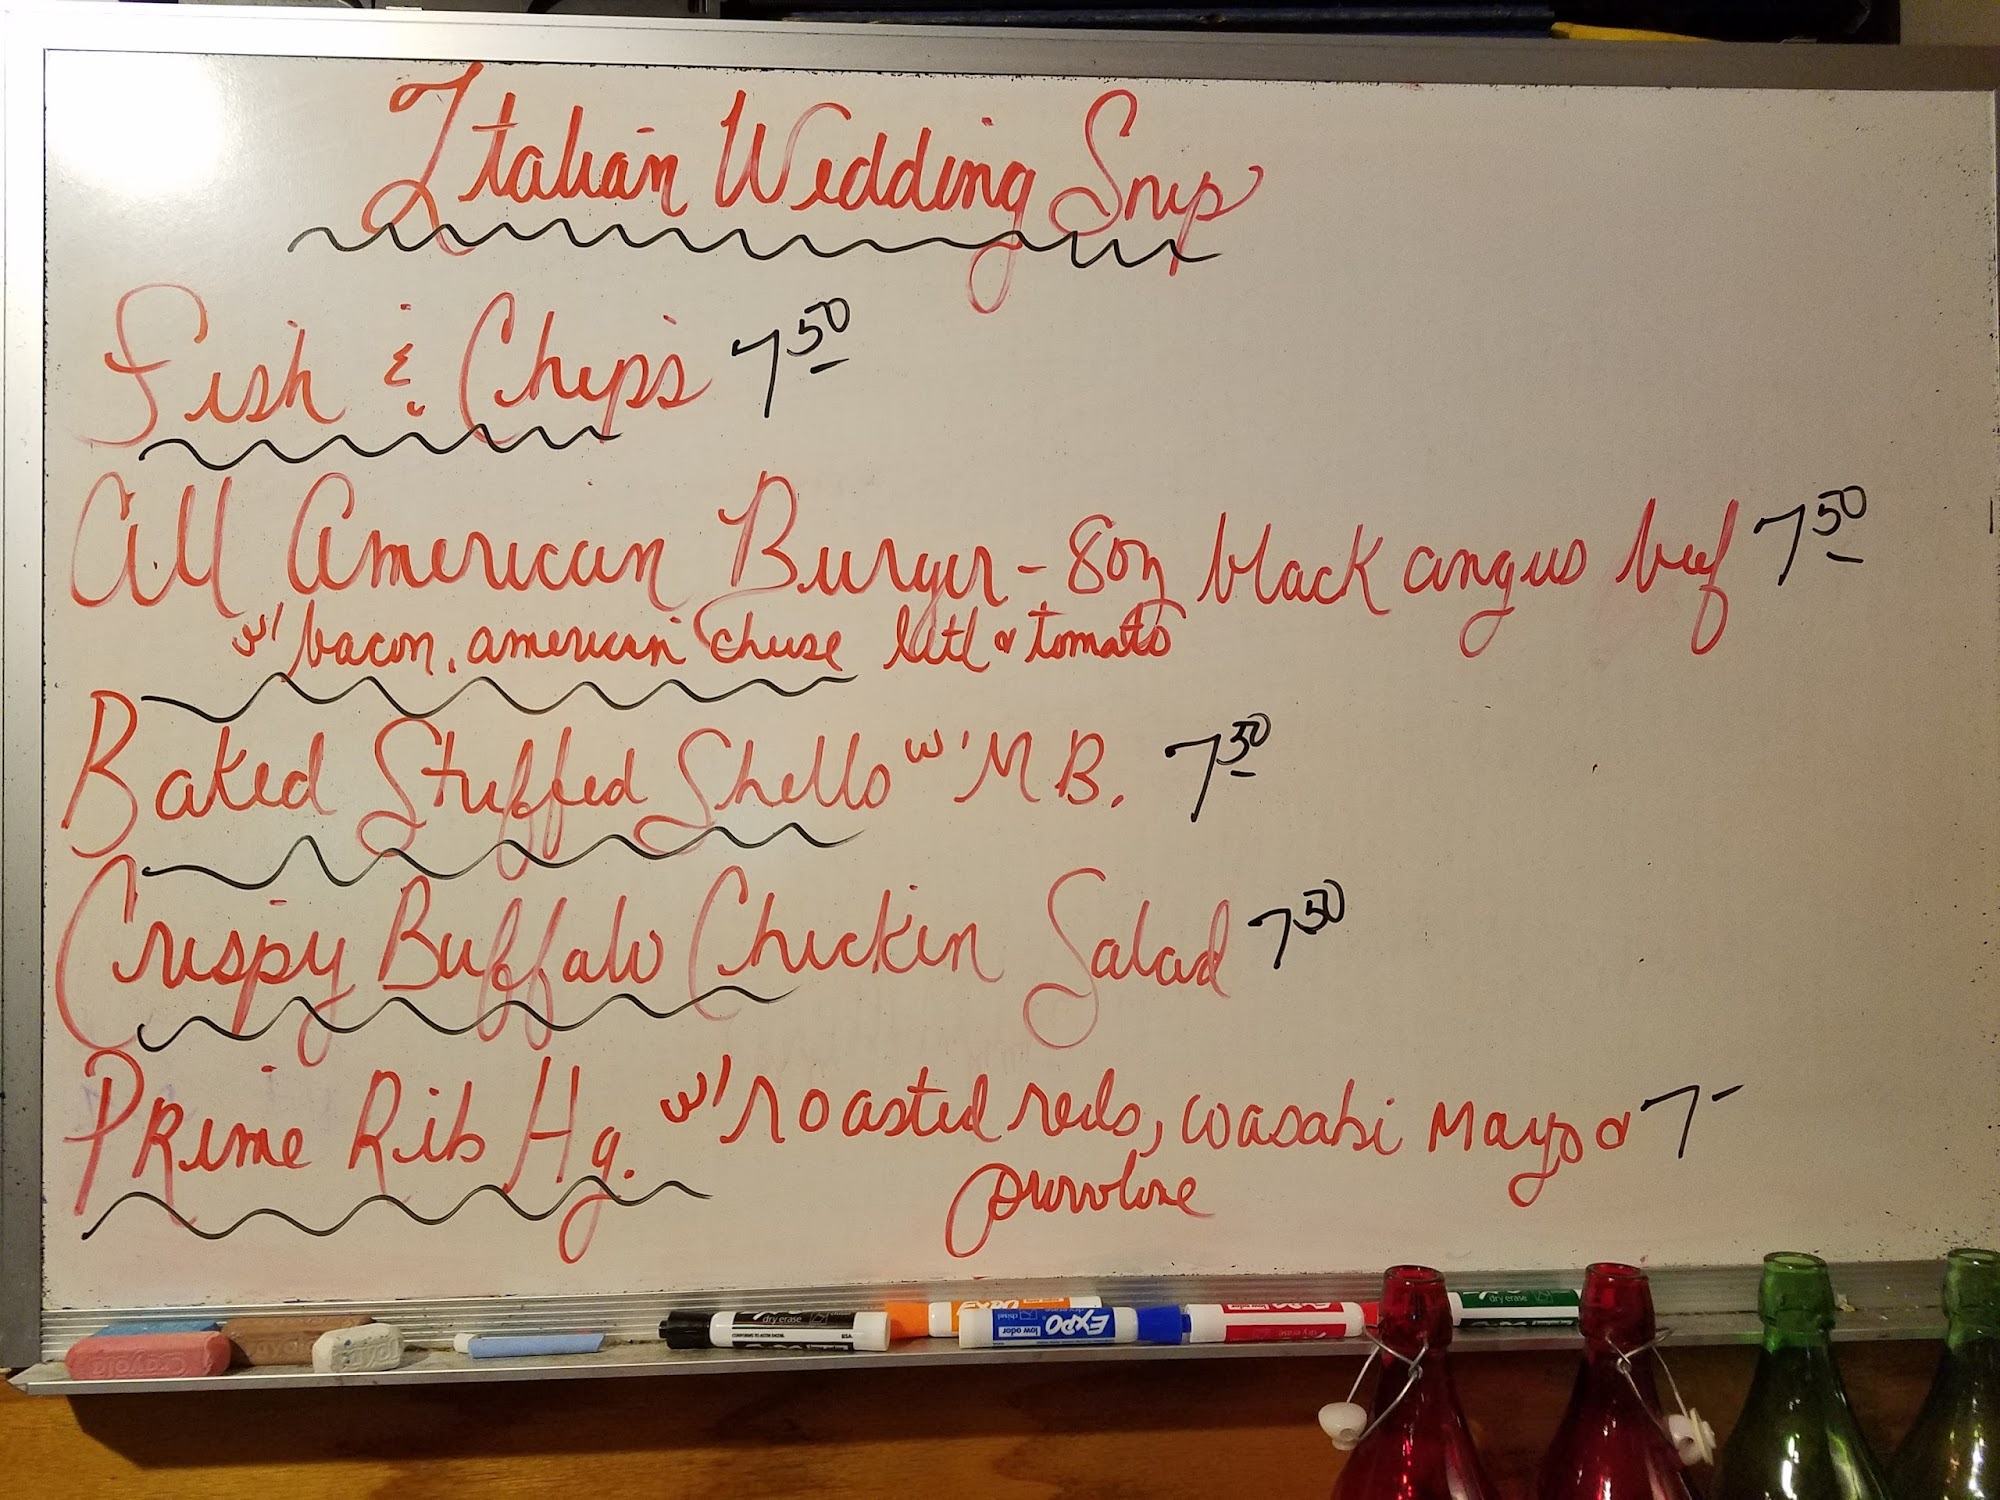 Italian Wedding Soup
Fish & Chips 7 50
All American Burger - 8oz black angus beef 7 50
w/ bacon, american cheese lett & tomato
Baked Stuffed Shells w/ M B. 7 50
Crispy Buffalo Chicken Salad 7 50
Prime Rib Hg. w/ roasted reds, wasabi Mayo & 7-
provolone
Crayola
dry erase
EXPO
low odor
dry erase